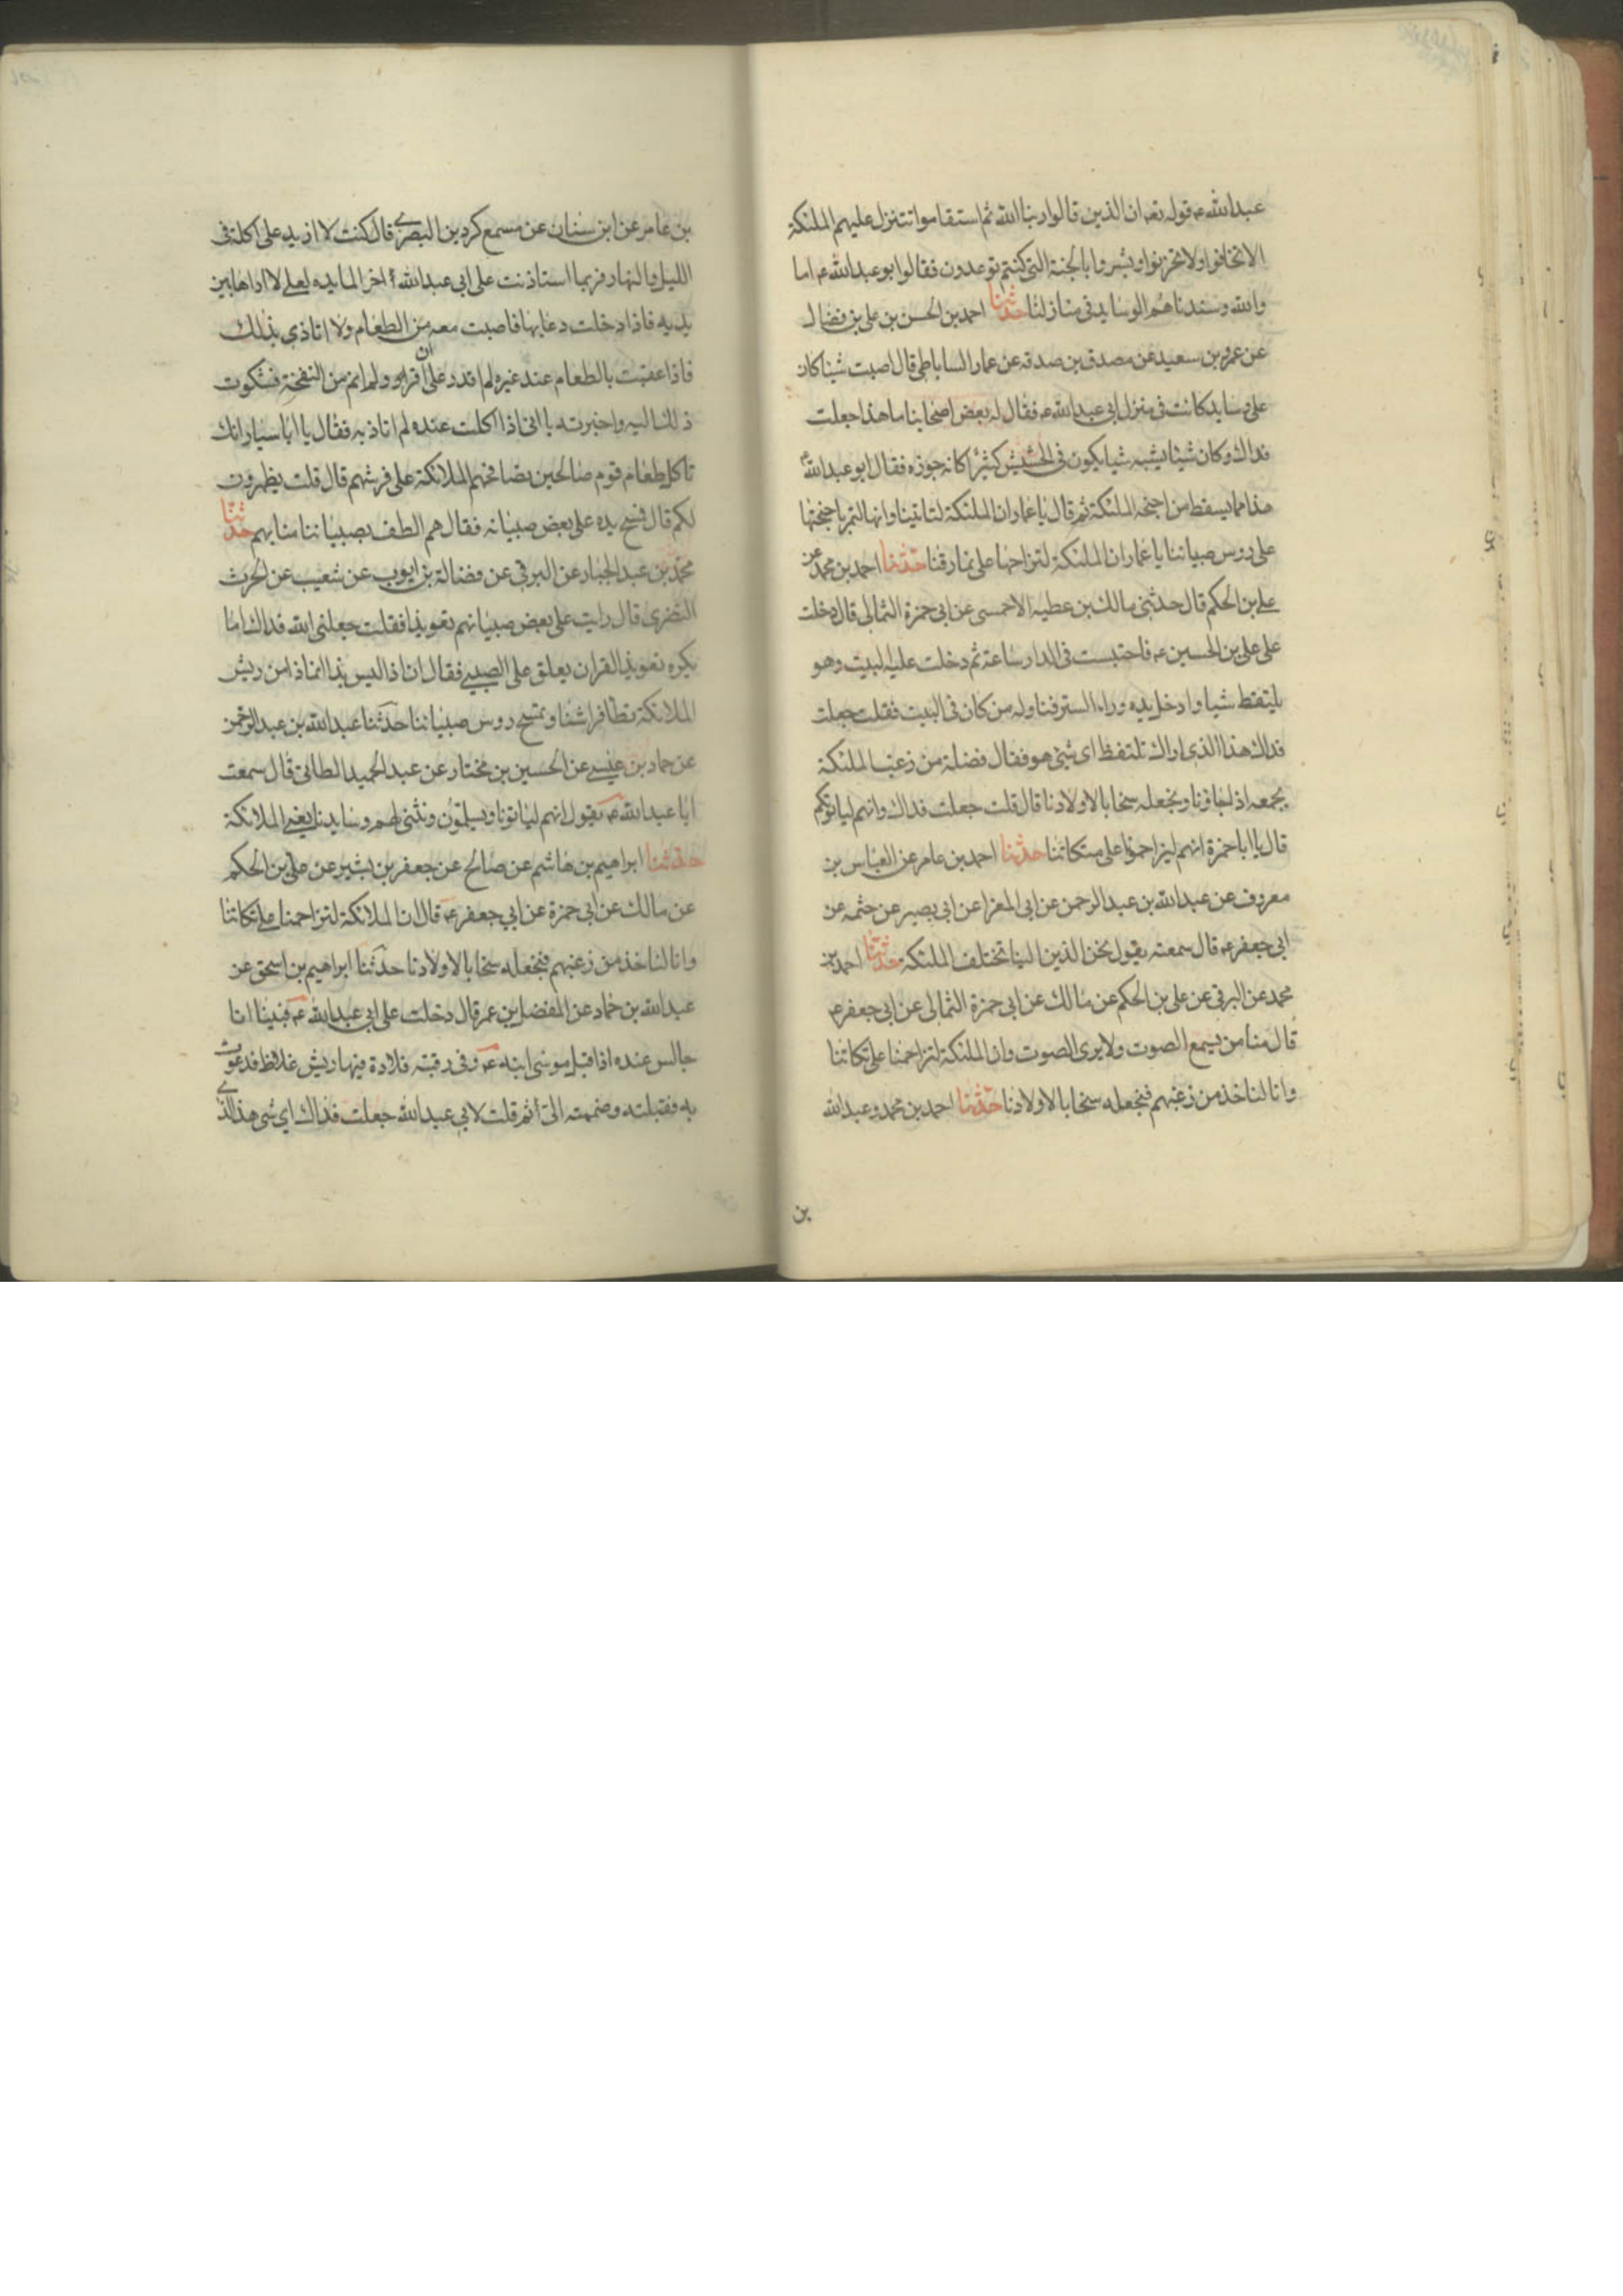 عبدالله ع قوله تعه ان الذين قالوا ربنا الله ثم استقاموا تتنزل عليهم الملئكة
الا تخافوا ولا تحزنوا وبشروا بالجنة التى كنتم توعدون فقالوا ابو عبدالله ع اما
والله وسندناهم الوسايد فى منازلنا حدثنا احمد بن الحسن بن على بن فضال
عن عمرو بن سعيد عن مصدق بن صدقه عن عمار الساباطى قال اصبت شيئا كان
على وسايد كانت فى منزل ابى عبدالله ع فقال له بعض اصحابنا ما هذا جعلت
فداك وكان شيئا يشبه شيا يكون فى الحشيش كثيرا كانه جوزه فقال ابو عبدالله ع
هذا مما يسقط من اجنحة الملئكة ثم قال يا عمار ان الملئكة لتاتينا وانها لتمر باجنحتها
على روس صبياننا يا عمار ان الملئكة لتزاحمنا على نمارقنا حدثنا احمد بن محمد عن
على بن الحكم قال حدثنى مالك بن عطيه الاحمسى عن ابى حمزة الثمالى قال دخلت
على على بن الحسين ع فاحتبست فى الدار ساعة ثم دخلت عليه البيت وهو
يلتقط شيا وادخل يده وراء الستر فناوله من كان فى البيت فقلت جعلت
فداك هذا الذى اراك تلتقط اى شئ هو فقال فضلة من زغب الملئكة
نجمعه اذا جاؤنا ونجعله سخابا لاولادنا قال قلت جعلت فداك وانهم لياتونكم
قال يا ابا حمزة انهم ليزاحمونا على متكاتنا حدثنا احمد بن عامر عن العباس بن
معروف عن عبدالله بن عبد الرحمن عن ابى المغرا عن ابى بصير عن خثمه عن
ابى جعفر ع قال سمعته يقول نحن الذين الينا تختلف الملئكة حدثنا احمد بن
محمد عن البرقى عن على بن الحكم عن مالك عن ابى حمزة الثمالى عن ابى جعفر ع
قال منا من يسمع الصوت ولا يرى الصوت وان الملئكة لتزاحمنا على تكاتنا
وانا لناخذ من زغبهم فنجعله سخابا لاولادنا حدثنا احمد بن محمد وعبدالله
بن
بن عامر عن ابن سنان عن مسمع كردين البصرى قال كنت لا ازيد على اكلة فى
الليل والنهار فربما استاذنت على ابى عبدالله ع اخر المايده لعلى لا اراها بين
يديه فاذا دخلت دعا بها فاصبت معه من الطعام ولا اتاذى بذلك
فاذا عقبت بالطعام عند غيره لم اقدر على ان اقر ولم انم من النفخة فشكوت
ذلك اليه واخبرته بانى اذا اكلت عنده لم اتاذ به فقال يا ابا سيار انك
تاكل طعام قوم صالحين تصافحهم الملائكة على فرشهم قال قلت يظهرون
لكم قال فمسح يده على بعض صبيانه فقال هم الطف بصبياننا منا بهم حدثنا
محمد بن عبد الجبار عن البرقى عن فضالة بن ايوب عن شعيب عن الحرث
النضرى قال رايت على بعض صبيانهم تعويذا فقلت جعلنى الله فداك اما
يكره تعويذ القران يعلق على الصبى فقال ان ذا ليس بذا انما ذا من ريش
الملائكة تطا فراشنا وتمسح روس صبياننا حدثنا عبدالله بن عبد الرحمن
عن حماد بن عيسى عن الحسين بن مختار عن عبد الحميد الطائى قال سمعت
ابا عبدالله ع يقول انهم لياتونا ويسلمون ونثنى لهم وسايدنا يعنى الملائكة
حدثنا ابراهيم بن هاشم عن صالح عن جعفر بن بشير عن على بن الحكم
عن مالك عن ابى حمزة عن ابى جعفر ع قال ان الملائكة لتزاحمنا على تكاتنا
وانا لناخذ من زغبهم فنجعله سخابا لاولادنا حدثنا ابراهيم بن اسحق عن
عبدالله بن حماد عن المفضل بن عمر قال دخلت على ابى عبدالله ع فبينا انا
جالس عنده اذا قبل موسى ابنه ع وفى رقبته قلادة فيها ريش غلاظ فدعوت
به فقبلته وضممته الى ثم قلت لابى عبدالله جعلت فداك اى شى هذا الذى